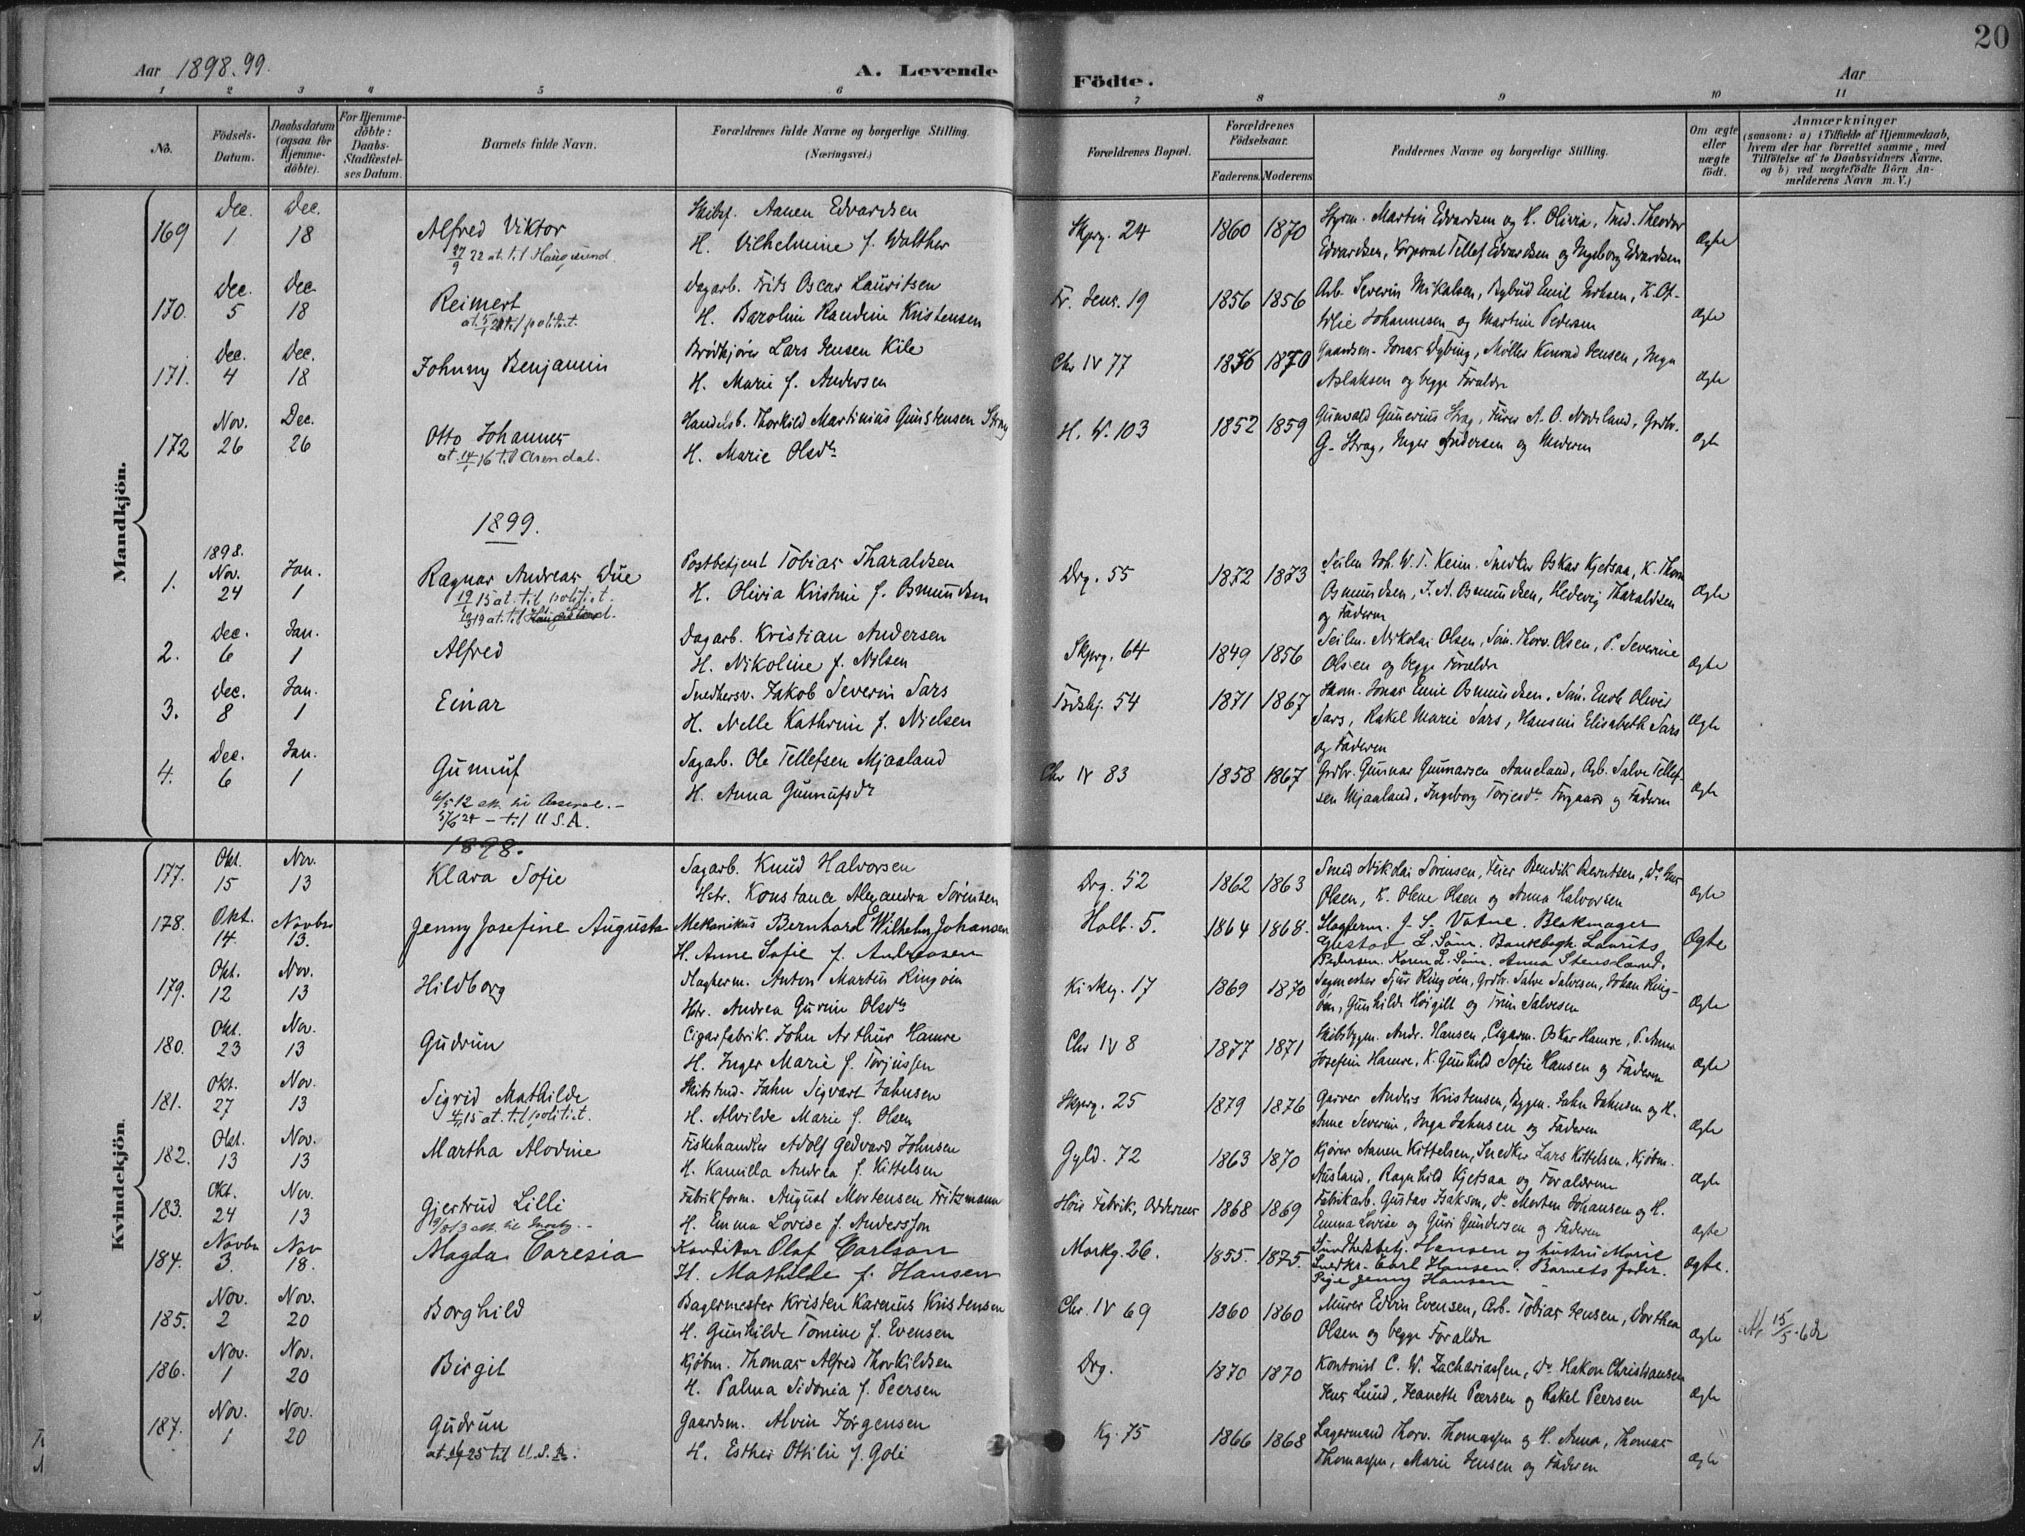 20
Aar 1898.99.
A. Levende Födte.
Aar
1 2 3 4 5 6 7 8 9 10 11
No.
Födsels-Datum.
Daabsdatum (ogsaa for Hjemme-döbte).
For Hjemme-döbte: Daabs-Stadfæstel-ses Datum.
Barnets fulde Navn.
Forældrenes fulde Navne og borgerlige Stilling.
(Næringsvei.)
Forældrenes Bopæl.
Forældrenes Födselsaar.
Faderens. Moderens
Faddernes Navne og borgerlige Stilling.
Om ægte eller uægte födt.
Anmærkninger
(saasom: a) i Tilfælde af Hjemmedaab, hvem der har forrettet samme, med Tilföielse af to Daabsvidners Navne, og b) ved uægtefödte Börn An-melderens Navn m. V.)
Mandkjön.
169 Dec. 1 Dec. 18 Alfred Viktor Skibst. Aanen Edvardsen Skprg. 24 1860 1870 Styrm. Martin Edvardsen og H. Olivia, Fred. Theodor Ægte
27/9 22 at. til Haugesund. H. Vilhelmine f. Walther Edvardsen, Korporal Tellef Edvardsen og Ingeborg Edvardsen
170. Dec. 5 Dec. 18 Reimert Dagarb. Frits Oscar Lauritsen Fr. Jens. 19 1856 1856 Arb. Severin Mikalsen, Bybud Emil Eriksen, K. Ot- Ægte
H. Baroline Randine Kristensen tilie Johannesen og Martine Pedersen
171. Dec. 4 Dec. 18 Johnny Benjamin Brödkjörer Lars Jensen Kile Chr IV 77 1876 1870 Gaardsm. Jonas Dybing, Möller Konrad Jensen, Inga Ægte
H. Marie f. Andersen Aslaksen og begge Foraldre
172 Nov. 26 Dec. 26 Otto Johannes Handelsb. Thorkild Martinius Gunstensen Stray H. W. 103 1852 1859 Gunvald Gunerius Stray, Furer A. O. Nodeland, Grdbr. Ægte
at 14/1 16 til Arendal. H. Marie Olsdr G. Stray, Inger Andersen og Moderen
1899.
1. 1898. Nov. 24 Jan. 1 Ragnar Andreas Due Postbetjent Tobias Tharaldsen Drg. 55 1872 1873 Seilm. Joh. W. T. Keim. Snedker Oskar Kjetsaa, K. Thom Ægte
15 at. til politit. H. Olivia Kristine f. Osmundsen Osmundsen, J. A. Osmundsen, Hedevig Tharaldsen
og Faderen
2. Dec. 6 Jan. 1 Alfred Dagarb. Kristian Andersen Skprg. 64 1849 1856 Seilm. Nikolai Olsen, Söm. Thorv. Olsen, P. Severine Ægte
H. Nikoline f. Nilsen Olsen og begge Foraldre
3. Dec. 8 Jan. 1 Einar Snedkersv. Jakob Severin Sars 54 1871 1867 Skom. Jonas Emil Osmundsen, Söm. Enok Oliver Ægte
H. Nelle Kathrine f. Nielsen Sars, Rakel Marie Sars, Hansine Elisabeth Sars
og Faderen
4. Dec. 6 Jan. 1 Gunnuf Dagarb. Ole Tellefsen Mjaaland Chr IV 83 1858 1867 Grdbr. Gunnar Gunnarsen Aaneland, Arb. Salve Tellef- Ægte
H. Anna Gunnufsdr sen Mjaaland, Ingeborg Torjesdr Forgaard og Faderen
til U S. A.
Kvindekjön.
1898.
177. Okt. 15 Nov. 13 Klara Sofie Dagarb. Knud Halvorsen Drg. 52 1862 1863 Smed Nikolai Sörensen, Feier Bendik Berntsen, Ægte
Hstr. Konstance Alexandra Sörensen Olsen, K. Olene Olsen og Anna Halvorsen
178. Okt. 14. Novbr 13. Jenny Josefine Augusta Mekanikus Bernhard Wilhelm Johansen Holb. 5. 1864 1868. Slagterm. J. S. Vatne. Blokmager Ægte
H. Anne Sofie f. Andreasen Gustav L. Söm. Banksbogh. Laurits
Pedersen. Karen L. Söm. Anna Stensland.
179. Okt. 12 Nov. 13 Hildborg Slagterm. Anton Martin Ringöen Kirkeg. 17 1869 1870 Sagmester Sjur Ringöen, Grdbr. Salve Salvesen, Johan Ring- Ægte
Hstr. Andrea Gurine Olsdr öen, Gunhilde Höigilt og Trine Salvesen
180. Okt. 23 Nov. 13 Gudrun Cigarfabrik. John Arthur Hamre Chr IV 8 1877 1871 Skibsbygm. Andr. Hansen, Cigarm. Oskar Hamre, P. Anna Ægte
H. Inger Marie f. Torjussen Josefine Hamre, K. Gunhild Sofie Hansen og Faderen
181. Okt. 27 Nov. 13 Sigrid Mathilde Skibstmd. Jahn Sigvart Jahnsen Skprg. 25 1879 1876 Garver Anders Kristensen, Bygm. Jahn Jahnsen og H. Ægte
15 at. til politit. H. Alvilde Marie f. Olsen Anne Severine, Inga Jahnsen og Faderen
182. Okt. 13 Nov. 13 Martha Alodine Fiskehandler Adolf Gedvard Johnsen Gyld. 72 1863 1870 Kjörer Aanen Kittelsen, Snedker Lars Kittelsen, Kjöbm. Ægte
H. Kamilla Andrea f. Kittelsen Ausland, Ragnhild Kjetsaa og Forældrene
183. Okt. 24 Nov. 13 Gjertrud Lilli Fabrikform. August Mortensen Fritzmann Höie Fabrik, Oddernes 1868 1869 Fabrikarb. Gustav Isakson, do Morten Johansen og H. Ægte
H. Emma Lovise f. Andersson Emma Lovise og Guri Gundersen og Faderen
184. Novbr 3. Nov 18. Magda Caresia Konditor Olaf Carlson Markg. 26. 1855. 1875. Sundhedsbetj. Hansen og hustru Marie Ægte.
H. Mathilde f. Hansen Snedkr. Carl Hansen. Barnets fader.
Pige Jenny Hansen
185. Nov. 2 Nov. 20 Borghild Bagermester Kristen Karenius Kristensen Chr. IV 69 1860 1860 Murer Edvin Evensen, Arb. Tobias Jensen, Dorthea Ægte 15/5
H. Gunhilde Tomine f. Evensen Olsen og begge Foraldre
186. Nov. 1 Nov. 20 Birgit Kjöbm. Thomas Alfred Thorkildsen Drg. 1870 1870 Kontorist C. W. Zachariassen, do Hakon Christiansen Ægte
H. Palma Sidonia f. Peersen Jens Lund, Jeanette Peersen og Rakel Peersen
187. Nov. 1 Nov. 20 Gudrun Gaardsm. Alvin Jörgensen Kg. 75 1866 1868 Lagermand Thorv. Thomassen og H. Anna, Thomas Ægte
25 til U. S. A. H. Esther Ottilie f. Golé Thomassen, Marie Jensen og Faderen